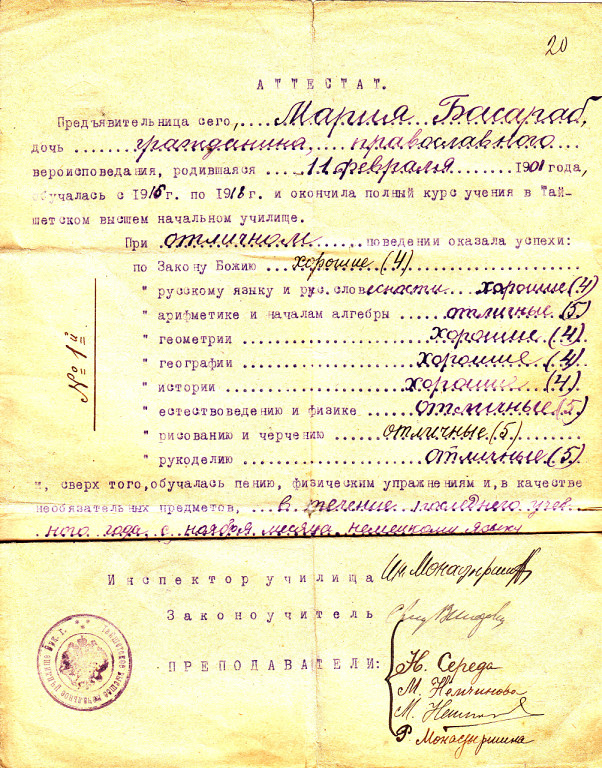 20
АТТЕСТАТ.
Предъявительница сего, Мария Басараб,
дочь гражданина, православного
вероисповедания, родившаяся 11 февраля 1901 года,
обучалась с 1916г. по 1918г. и окончила полный курс учения в Тай-
шетском высшем начальном училище.
При отличном поведении оказала успехи:
по Закону Божию хорошие (4)
" русскому языку и рус. словесности хорошие (4)
" арифметике и началам алгебры отличные (5)
" геометрии хорошие (4)
" географии хорошие (4)
" истории хорошие (4)
" естествоведению и физике отличные (5)
" рисованию и черчению отличные (5)
" рукоделию отличные (5)
№ 1й
и, сверх того, обучалась пению, физическим упражнениям и, в качестве
необязательных предметов, в течение последнего учеб
ного года с ноября месяца немецкому языку
Инспектор училища Ив Монастыршин
Законоучитель
ПРЕПОДАВАТЕЛИ:
Н. Середа
М. Немчинова
М.
Р. Монастыршина
Тайшетское высшее начальное училище